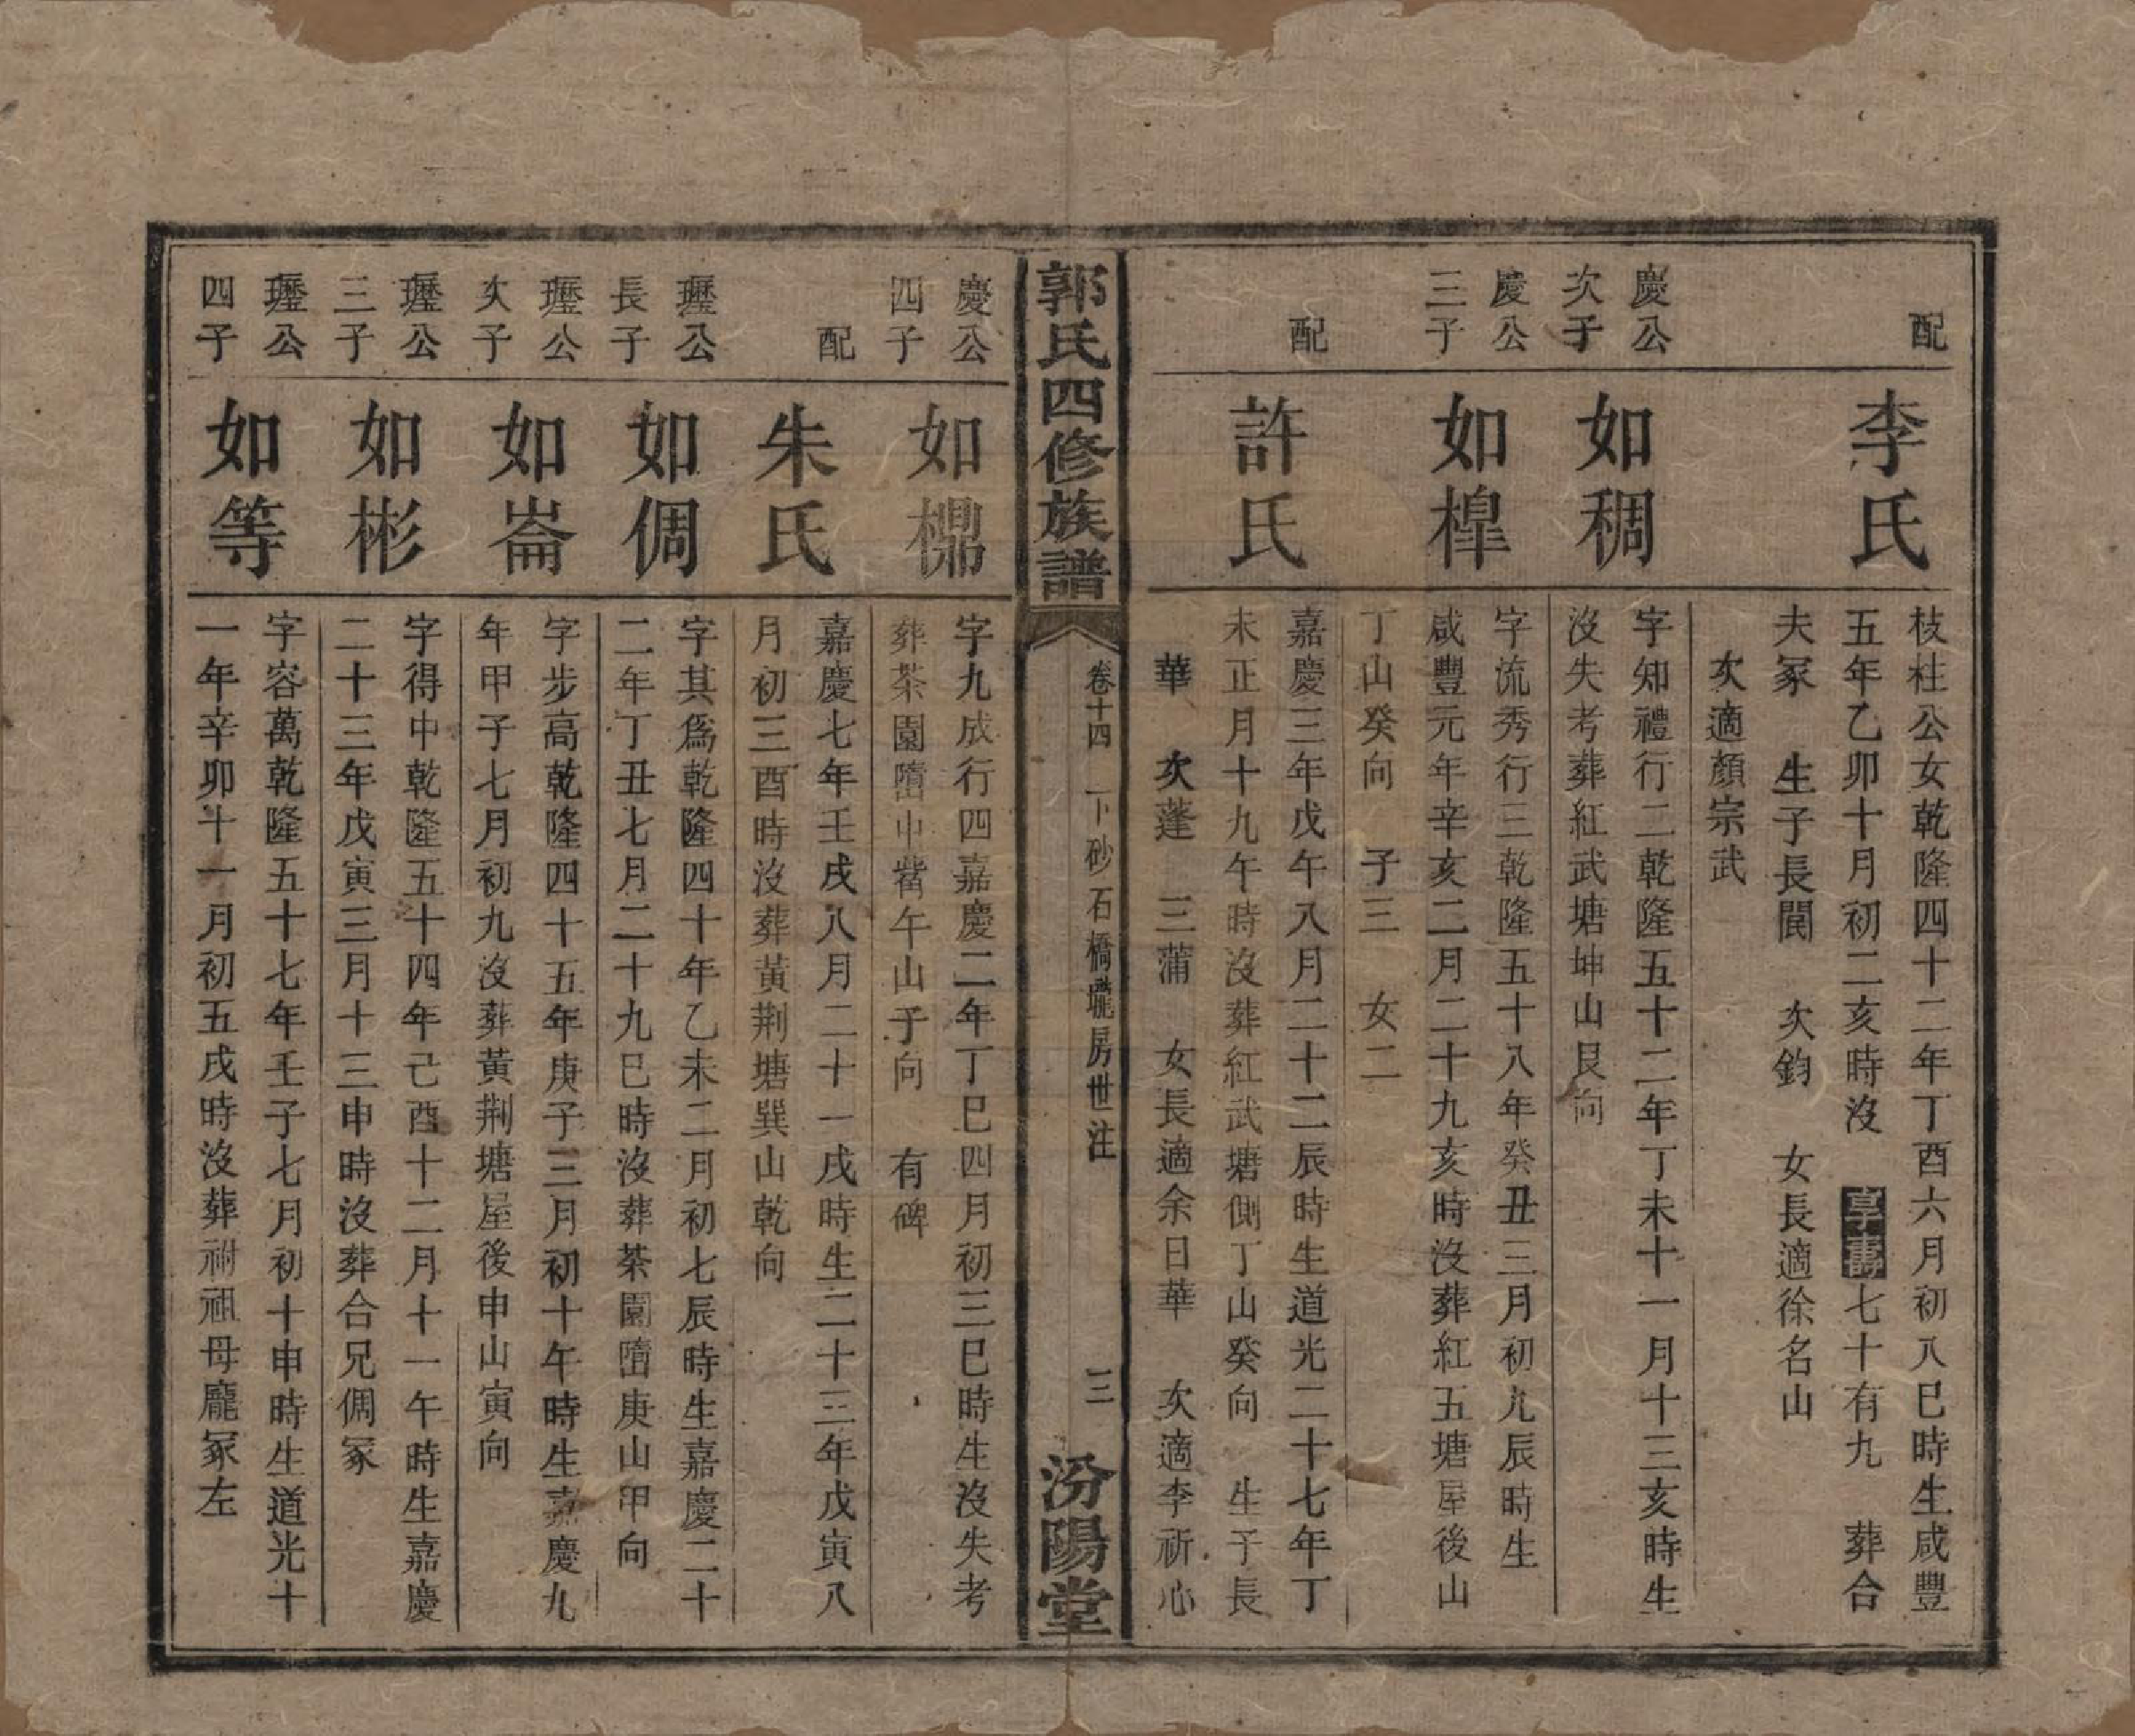 配
李氏
枝桂公女乾隆四十二年丁酉六月初八巳時生咸豐
五年乙卯十月初二亥時沒 享壽七十有九 葬合
夫冢 生子長閏 次鈞 女長適徐名山
次適顏宗武
慶公
次子
如稠
字知禮行二乾隆五十二年丁未十一月十三亥時生
沒失考葬紅武塘坤山艮向
慶公
三子
如樟
字流秀行三乾隆五十八年癸丑三月初九辰時生
咸豐元年辛亥二月二十九亥時沒葬紅五塘屋後山
丁山癸向 子三 女二
配
許氏
嘉慶三年戊午八月二十二辰時生道光二十七年丁
未正月十九午時沒葬紅武塘側丁山癸向 生子長
華 次蓬 三蒲 女長適余日華 次適李祈心
郭氏四修族譜
卷十四 下砂石橋瓏房世注
三
汾陽堂
慶公
四子
如㯲
字九成行四嘉慶二年丁巳四月初三巳時生沒失考
葬茶園墮巾觜午山子向 有碑
配
朱氏
嘉慶七年壬戌八月二十一戌時生二十三年戊寅八
月初三酉時沒葬黃荆塘巽山乾向
瓑公
長子
如倜
字其爲乾隆四十年乙未二月初七辰時生嘉慶二十
二年丁丑七月二十九巳時沒葬茶園墮庚山甲向
瓑公
次子
如崙
字步高乾隆四十五年庚子三月初十午時生嘉慶九
年甲子七月初九沒葬黃荆塘屋後申山寅向
瓑公
三子
如彬
字得中乾隆五十四年己酉十二月十一午時生嘉慶
二十三年戊寅三月十三申時沒葬合兄倜冢
瓑公
四子
如等
字容萬乾隆五十七年壬子七月初十申時生道光十
一年辛卯十一月初五戌時沒葬祔祖母龐冢左